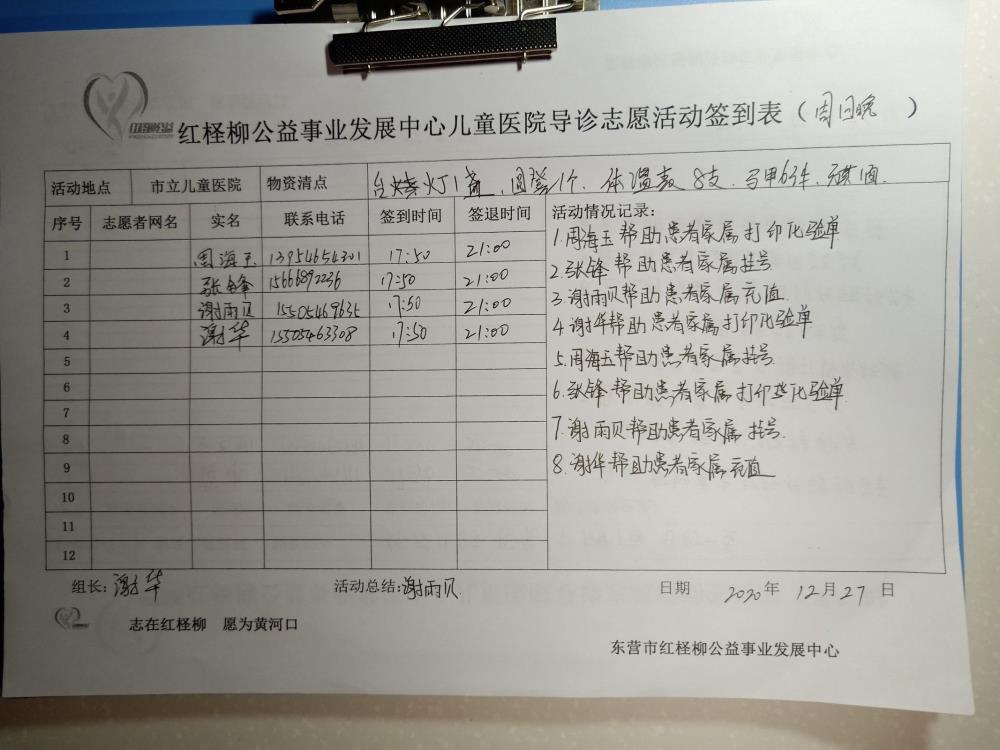 红柽柳公益事业发展中心儿童医院导诊志愿活动签到表（周日晚）
活动地点 市立儿童医院 物资清点 1 圆凳1个、体温表8支、马甲6件、
序号 志愿者网名 实名 联系电话 签到时间 签退时间 活动情况记录：
1 周海玉 13954654301 17:50 21:00
2 张锋 15666892236 17:50 21:00
3 谢雨贝 15505469635 17:50 21:00
4 谢华 15505463308 17:50 21:00
5
6
7
8
9
10
11
12
1.周海玉帮助患者家属打印化验单
2.张锋帮助患者家属挂号
3.谢雨贝帮助患者家属充值
4.谢华帮助患者家属打印化验单
5.周海玉帮助患者家属挂号
6.张锋帮助患者家属打印化验单
7.谢雨贝帮助患者家属挂号
8.谢华帮助患者家属充值
组长：谢华 活动总结：谢雨贝 日期 2020年12月27日
志在红柽柳 愿为黄河口
东营市红柽柳公益事业发展中心